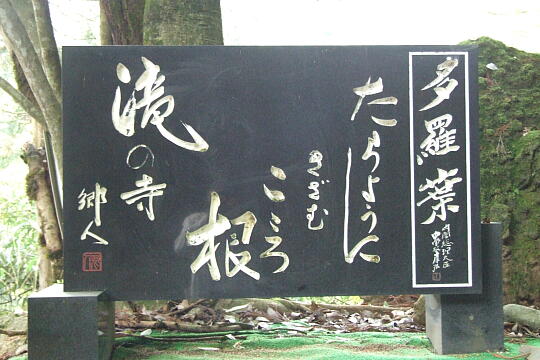 多羅葉
たらように
きざむ
こころ
根
滝の寺
郷人